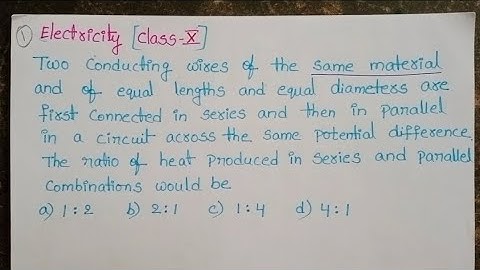 ① Electricity [Class-X]
Two Conducting wires of the same material
and of equal lengths and equal diameters are
first Connected in series and then in Parallel
in a circuit across the same potential difference.
The ratio of heat Produced in series and parallel
Combinations would be
a) 1 : 2 b) 2 : 1 c) 1 : 4 d) 4 : 1